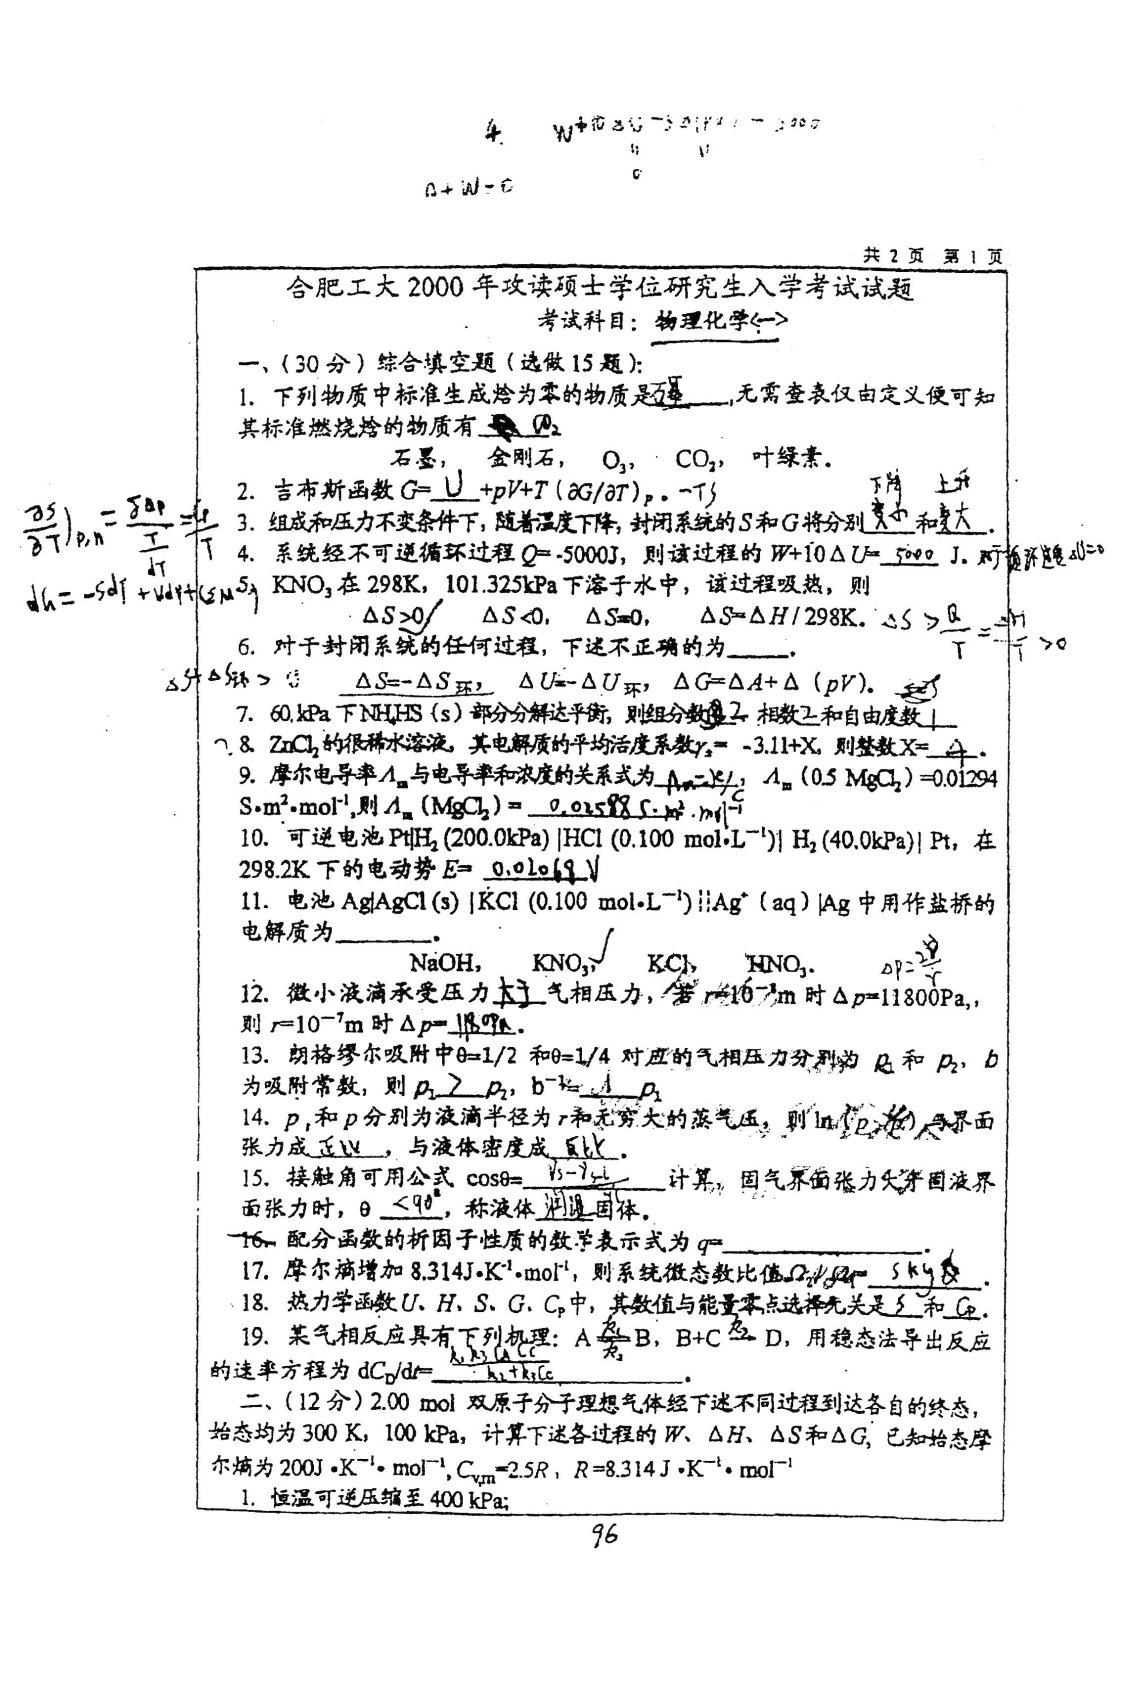 4.
Q+W=0
共 2 页 第 1 页
合肥工大 2000 年攻读硕士学位研究生入学考试试题
考试科目：物理化学<一>
一、（30 分）综合填空题（选做 15 题）:
1. 下列物质中标准生成焓为零的物质是石墨,无需查表仅由定义便可知
其标准燃烧焓的物质有 CO₂
石墨， 金刚石， O₃， CO₂， 叶绿素.
2. 吉布斯函数 G= U +pV+T（∂G/∂T）ₚ. -TS
下降 上升
3. 组成和压力不变条件下，随着温度下降，封闭系统的 S 和 G 将分别变小 和变大.
4. 系统经不可逆循环过程 Q=-5000J，则该过程的 W+10ΔU= 5000 J. 对于循环过程 ΔU=0
dG = -SdT + Vdp +
5. KNO₃ 在 298K，101.325kPa 下溶于水中，该过程吸热，则
ΔS>0√ ΔS<0, ΔS=0, ΔS=ΔH/298K. ΔS > Q/T = ΔH/T >0
6. 对于封闭系统的任何过程，下述不正确的为____.
ΔS+ΔS环 > 0 ΔS=-ΔS环， ΔU=-ΔU环， ΔG=ΔA+Δ（pV）.
7. 60.kPa 下 NH₄HS（s）部分分解达平衡，则组分数 2 相数2和自由度数 1
?8. ZnCl₂ 的很稀水溶液，其电解质的平均活度系数γ±= -3.11+X，则整数 X= 4 .
9. 摩尔电导率Λm 与电导率和浓度的关系式为 Λm=κ/c ; Λm（0.5 MgCl₂）=0.01294
S•m²•mol⁻¹,则Λm（MgCl₂）= 0.02588 S·m²·mol⁻¹
10. 可逆电池 Pt|H₂ (200.0kPa) |HCl (0.100 mol•L⁻¹)| H₂ (40.0kPa)| Pt，在
298.2K 下的电动势 E= 0.02069 V
11. 电池 Ag|AgCl (s) |KCl (0.100 mol•L⁻¹)¦¦Ag⁺（aq）|Ag 中用作盐桥的
电解质为______.
NaOH, KNO₃,√ KCl, HNO₃. Δp=2γ/r
12. 微小液滴承受压力大于气相压力，若 r=10⁻⁸m 时 Δp=11800Pa,,
则 r=10⁻⁷m 时 Δp= 1180Pa .
13. 朗格缪尔吸附中θ=1/2 和θ=1/4 对应的气相压力分别为 p₁ 和 p₂，b
为吸附常数，则 p₁ > p₂，b⁻¹= 1 p₁
14. pᵣ和 p 分别为液滴半径为 r 和无穷大的蒸气压，则 ln（pᵣ/p）与界面
张力成 正比 ，与液体密度成 反比 .
15. 接触角可用公式 cosθ= 计算，固气界面张力大于固液界
面张力时，θ <90° ，称液体 润湿固体.
16. 配分函数的析因子性质的数学表示式为 q=____________.
17. 摩尔熵增加 8.314J•K⁻¹•mol⁻¹，则系统微态数比值Ω₂/Ω₁=
18. 热力学函数 U、H、S、G、Cₚ 中，其数值与能量零点选择无关是 S 和 Cp.
19. 某气相反应具有下列机理：A ⇌ B，B+C → D，用稳态法导出反应
的速率方程为 dC_D/dt= k₁k₃CACC / k₂+k₃Cc .
二、（12 分）2.00 mol 双原子分子理想气体经下述不同过程到达各自的终态，
始态均为 300 K，100 kPa，计算下述各过程的 W、ΔH、ΔS 和ΔG，已知始态摩
尔熵为 200J •K⁻¹• mol⁻¹, Cv,m=2.5R，R=8.314 J •K⁻¹• mol⁻¹
1. 恒温可逆压缩至 400 kPa;
96